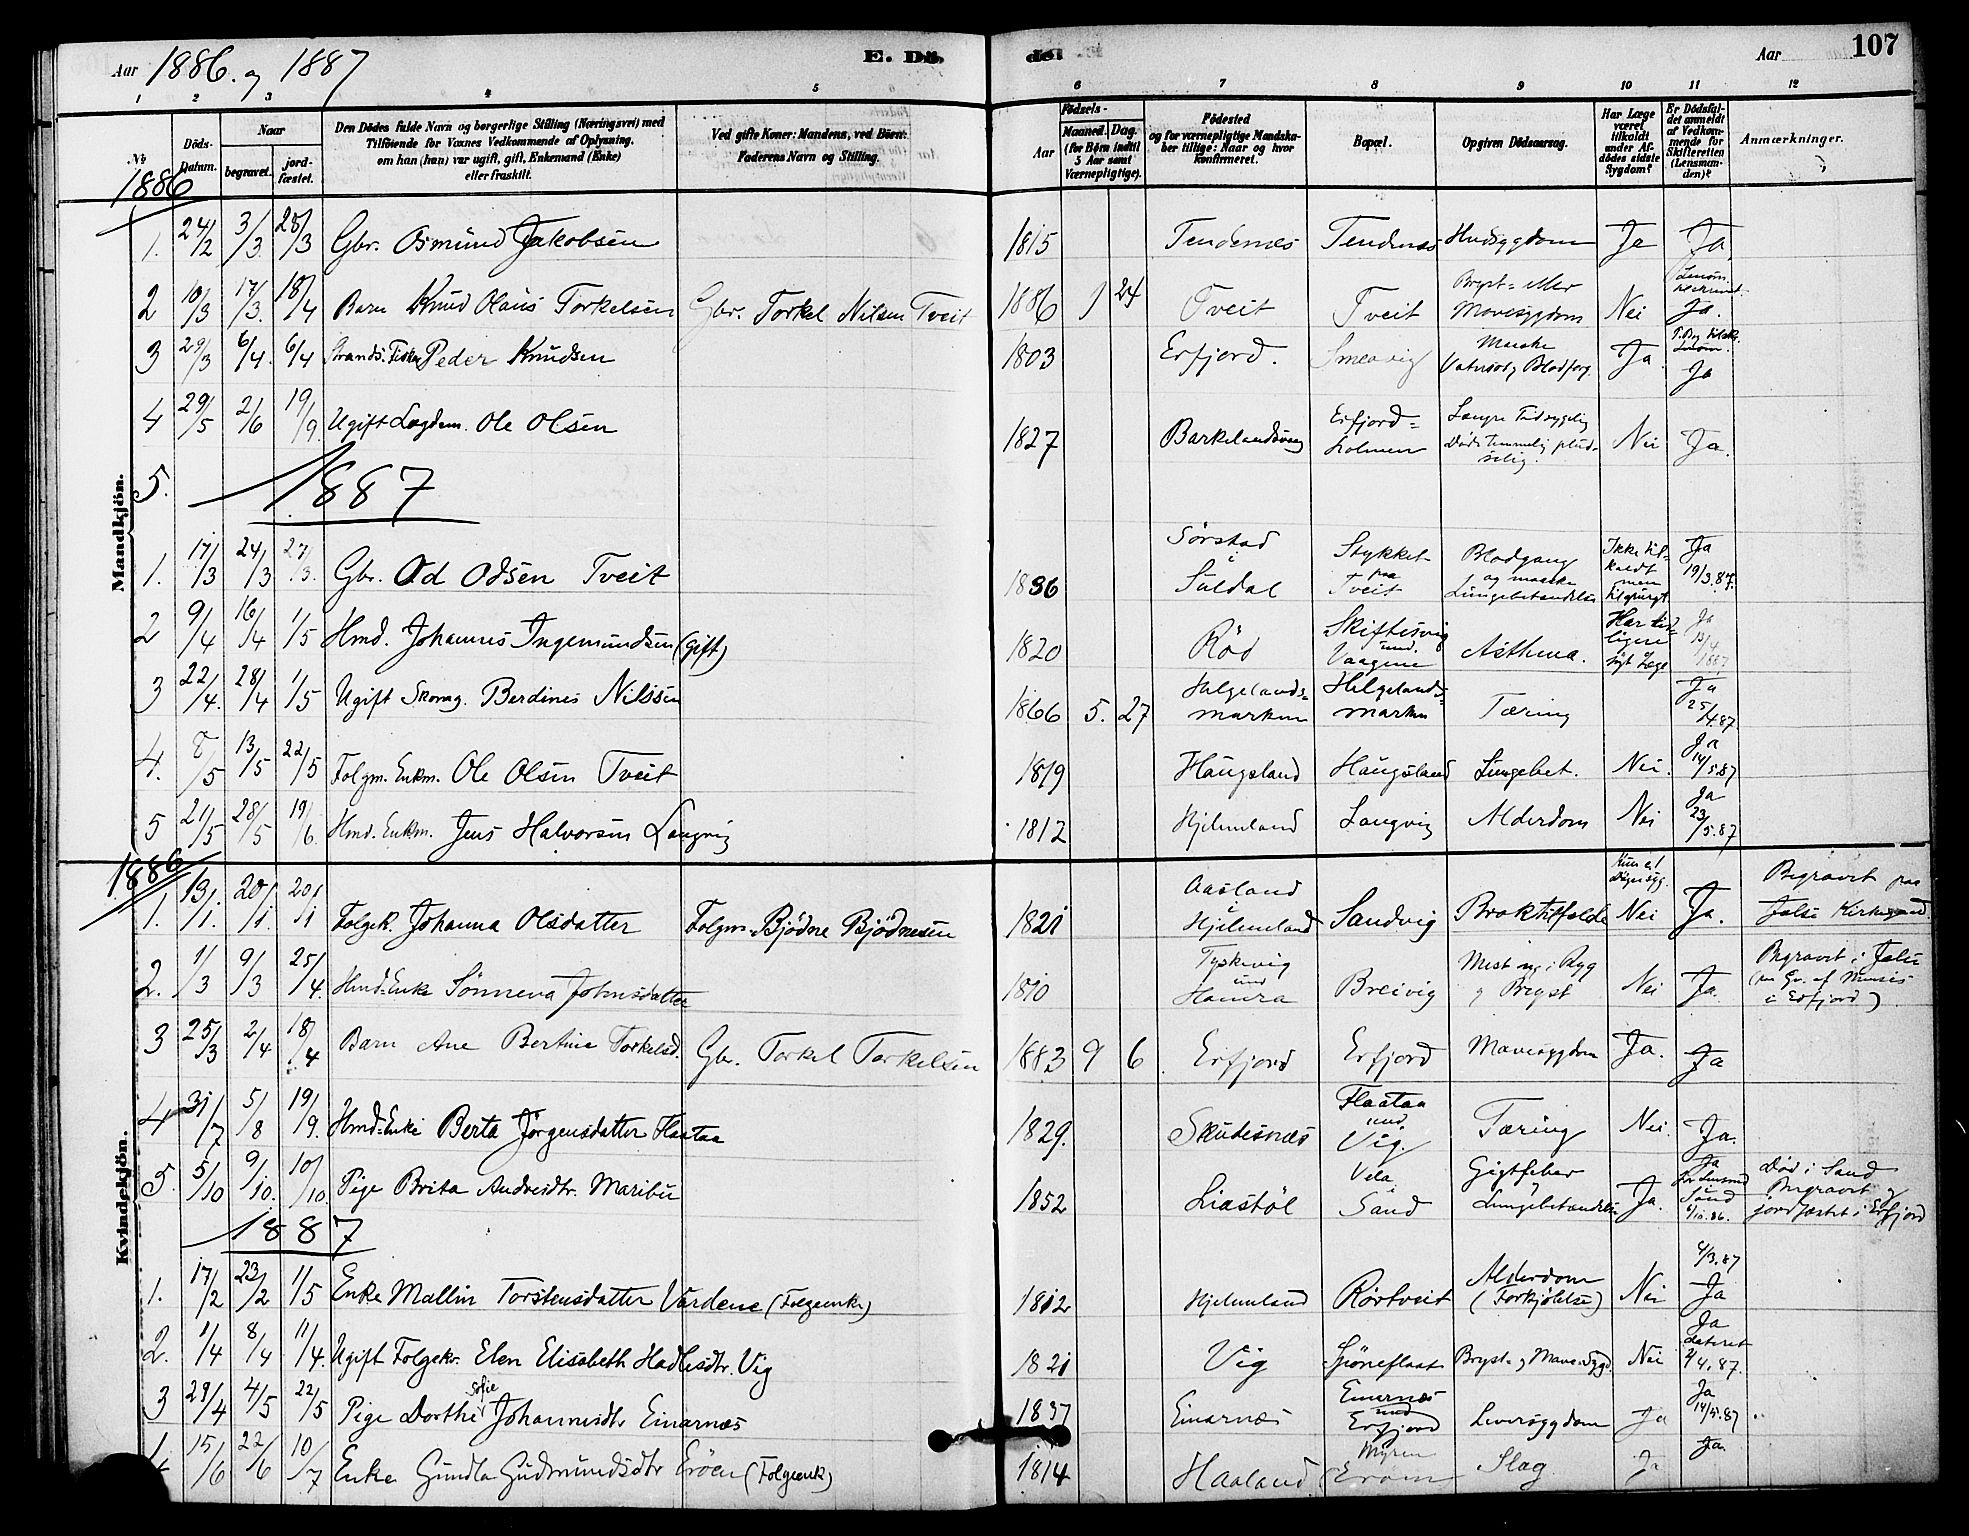 Aar 1886. og 1887 E. Dö- de. Aar 107
1 2 3 4 5 6 7 8 9 10 11 12
No
Döds-Datum.
Naar
begravet. jord-fæstet.
Den Dödes fulde Navn og borgerlige Stilling (Næringsvei) med
Tilföiende for Voxnes Vedkommende af Oplysning,
om han (hun) var ugift, gift, Enkemand (Enke)
eller fraskilt.
Ved gifte Koner: Mandens, ved Börn:
Faderens Navn og Stilling.
Födsels-
Aar Maaned. Dag.
(for Börn indtil
5 Aar samt
Værnepligtige).
Födested
og for værnepligtige Mandska-
ber tillige: Naar og hvor
konfirmeret.
Bopæl.
Opgiven Dödsaarsag.
Har Læge
været
tilkaldt
under Af-
dödes sidste
Sygdom?
Er Dödsfal-
det anmeldt
af Vedkom-
mende for
Skifteretten
(Lensman-
den)?
Anmærkninger.
Mandkjön.
1886
1. 24/2 3/3 28/3 Gbr. Osmund Jakobsen 1815 Tendenes Tendenes Ja Ja
2 10/3 17/3 18/4 Barn Knud Olaus Torkelsen Gbr. Torkel Nilsen Tveit 1886 1 24 Tveit Tveit Bryst- eller Mavesygdom Nei Ja.
3 29/3 6/4 6/4 Strands. Peder Knudsen 1803 Erfjord. Smeavig Maaske Vatersot og Ja Ja
4 29/5 2/6 19/9 Ugift Lægdem. Ole Olsen 1827 Barkelandsvaag Erfjord-holmen Længre Tid sygelig Döde temmelig plud-selig. Nei Ja.
5.
1887
1. 17/3 24/3 27/3. Gbr. Od Odsen Tveit 1836 Sørstad i Suldal Stykket paa Tveit Blodgang og maaske Lungebetændelse Ikke til-kaldt men Ja 19/3.87.
2 9/4 16/4 1/5 Hmd. Johannes Ingemundsen (gift) 1820 Röd Skiftesvig und. Vaagene Asthma. Har tid-ligere søgt Læge Ja 13/4 1887
3 22/4. 28/4 1/5 Ugift Skomag. Berdines Nilssen 1866 5. 27 Helgelands-marken Helgelands-marken Tæring Ja 25/4.87
4. 8/5 13/5 22/5 Folgm. Enkm. Ole Olsen Tveit 1819 Haugsland Haugsland Lungebet. Nei. Ja 14/5.87
5 21/5 28/5 19/6 Hmd. Enkm. Jens Halvorsen Langvig 1812 Hjelmeland Langvig Alderdom Nei Ja 23/5.87
Kvindekjön.
1886
1. 13/1. 20/1. 20/1 Folgek. Johanna Olsdatter Folgm. Bjödne Bjödnesen 1821 Aasland i Hjelmeland Sandvig Broktilfælde Kun et Døgn syg. Nei Ja. Begravet paa Jelse Kirkegaard
2. 1/3 9/3 25/4. Hmd-Enke Sönneva Johnsdatter 1810 Tyskevig und Hamra Breivig Mest syg i Ryg og Bryst Nei Ja. Begravet i Jelse
3 25/3 2/4 18/4 Barn Ane Bertine Torkelsd. Gbr. Torkel Torkelsen 1883 9 6 Erfjord Erfjord Mavesygdom Ja. Ja
4 31/7 5/8 19/9. Hmd-Enke Berta Jörgensdatter Flaataa 1829. Skudesnæs Flaataa und. Vig. Tæring Nei. Ja.
5. 5/10 9/10. 10/10. Pige Brita Andreasdtr. Maribu 1852 Liastöl Vela Sand Gigtfeber og Lungebetændelse Ja. Ja for Lensmd Sand 6/10.86. Död i Sand Begravet og jordfæstet i Erfjord
1887
1. 17/2 23/2 1/5 Enke Mallin Torstensdatter Vardene (Folgeenke) 1812 Hjelmeland Rörtveit Alderdom (Forkjölelse) Nei 4/3.87 Ja
2. 1/4 8/4 11/4. Ugift Folgekv. Elen Elisabeth Hadlesdtr. Vig 1821 Vig Bryst- og Mave-Sygd. Nei Ja dateret 2/4.87.
3 29/4 4/5 22/5 Pige Dorthe Sofie Johannesdtr Einarnæs 1837 Einarnæs Einarnæs und Erfjord Leversygdom Ja Ja 14/5.87
4 15/6 22/6 10/7 Enke Gundla Gudmundsdtr Eröen (Folgeenk) 1814 Haaland Myren Eröen Slag Ja Ja